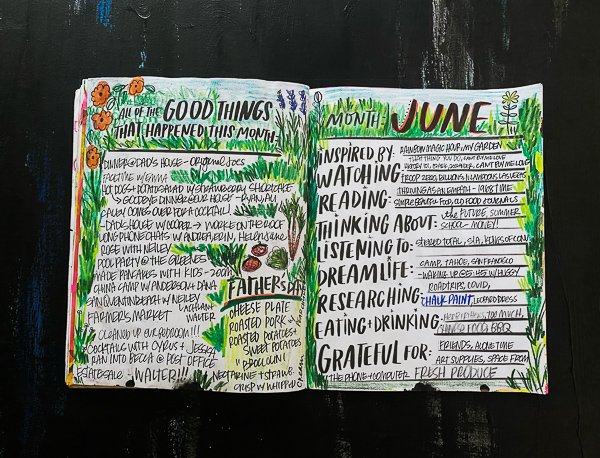 ALL OF THE GOOD THINGS
THAT HAPPENED THIS MONTH:
DINNER@DAD'S HOUSE - ORIGINAL JOE'S
FACETIME W/EMMA
HOT DOGS + POTATO SALAD W/STRAWBERRY SHORTCAKE
→ GOODBYE DINNER@OUR HOUSE - RYAN, ALI
CALEY COMES OVER FOR A COCKTAIL
DAD'S HOUSE W/COOPER → WORK ON THE ROOF
LONG PHONE CHATS W/ANDREA, ERIN,
ROSE WITH NELLEY
POOL PARTY @ THE GREENES
MADE PANCAKES WITH KIDS - ZOOM
CHINA CAMP W/ANDERSON + DANA
SAN QUENTIN BEACH W/NELLEY
FARMERS MARKET
WALTER
CLEANED UP OUR ROOM!!!
COCKTAILS WITH CYRUS + JESSICA
RAN INTO BECCA @ POST OFFICE
ESTATE SALE - WALTER!!!
FATHERS DAY
CHEESE PLATE
ROASTED PORK
ROASTED POTATOES +
SWEET POTATOES
NECTARINE + STRAWB.
CRISP W/WHIPPED CREAM
MONTH: JUNE
INSPIRED BY: RAINBOW MAGIC HOUR, MY GARDEN
THAT THING YOU DO, CAN'T BUY ME LOVE
WATCHING
READING:
SIMPLE BEAUTIFUL FOOD, OLD FOOD JOURNALS
THINKING ABOUT: THE FUTURE, SUMMER
SCHOOL - MONEY!
LISTENING TO: STEREO TOTAL, SIA, KINGS OF CONV
DREAMLIFE: CAMP, TAHOE, SAN FRANCISCO
- WAKING UP @5:45 W/HUGGY
RESEARCHING: ROADTRIPS, COVID,
CHALK PAINT, LEOPARD DRESS
EATING + DRINKING: TOO MUCH,
CHINESE FOOD, BBQ
GRATEFUL FOR: FRIENDS, ALONE TIME
ART SUPPLIES, SPACE FROM
THE PHONE + COMPUTER FRESH PRODUCE